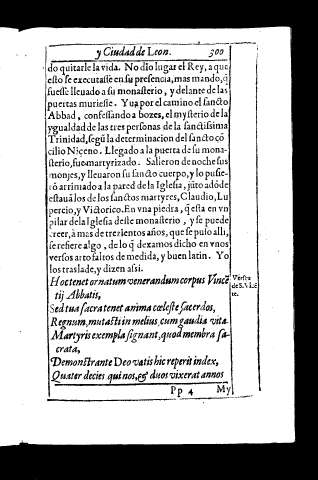 y Ciudad de Leon. 300
do quitarle la vida. No dio lugar el Rey, a que
esto se executasse en su presencia, mas mando, q̃
fuesse lleuado a su monasterio, y delante de las
puertas muriesse. Yua por el camino el sancto
Abbad, confessando a bozes, el mysterio de la
ygualdad de las tres personas de la sanctissima
Trinidad, segũ la determinacion del sancto cõ
cilio Niçeno. Llegado a la puerta de su mona-
sterio, fue martyrizado. Salieron de noche sus
monjes, y lleuaron su sancto cuerpo, y lo pusie-
rõ arrimado a la pared de la Iglesia, jũto adõde
estauã los de los sanctos martyres, Claudio, Lu
percio, y Victorico. En vna piedra, q̃ esta en vn
pilar de la Iglesia deste monasterio, y se puede
creer, à mas de trezientos años, que se puso alli,
se refiere algo, de lo q̃ dexamos dicho en vnos
versos arto faltos de medida, y buen latin. Yo
los traslade, y dizen assi.
Hoc tenet ornatum venerandum corpus Vincẽ
tij Abbatis,
Sed tua sacra tenet anima cœleste sacerdos,
Regnum, mutasti in melius, cum gaudia vitæ
Martyris exempla signant, quod membra sa-
crata,
Demonstrante Deo vatis hic reperit index,
Quater decies quinos, & duos vixerat annos
Versos
de S. Vicẽ
te.
Pp 4 My